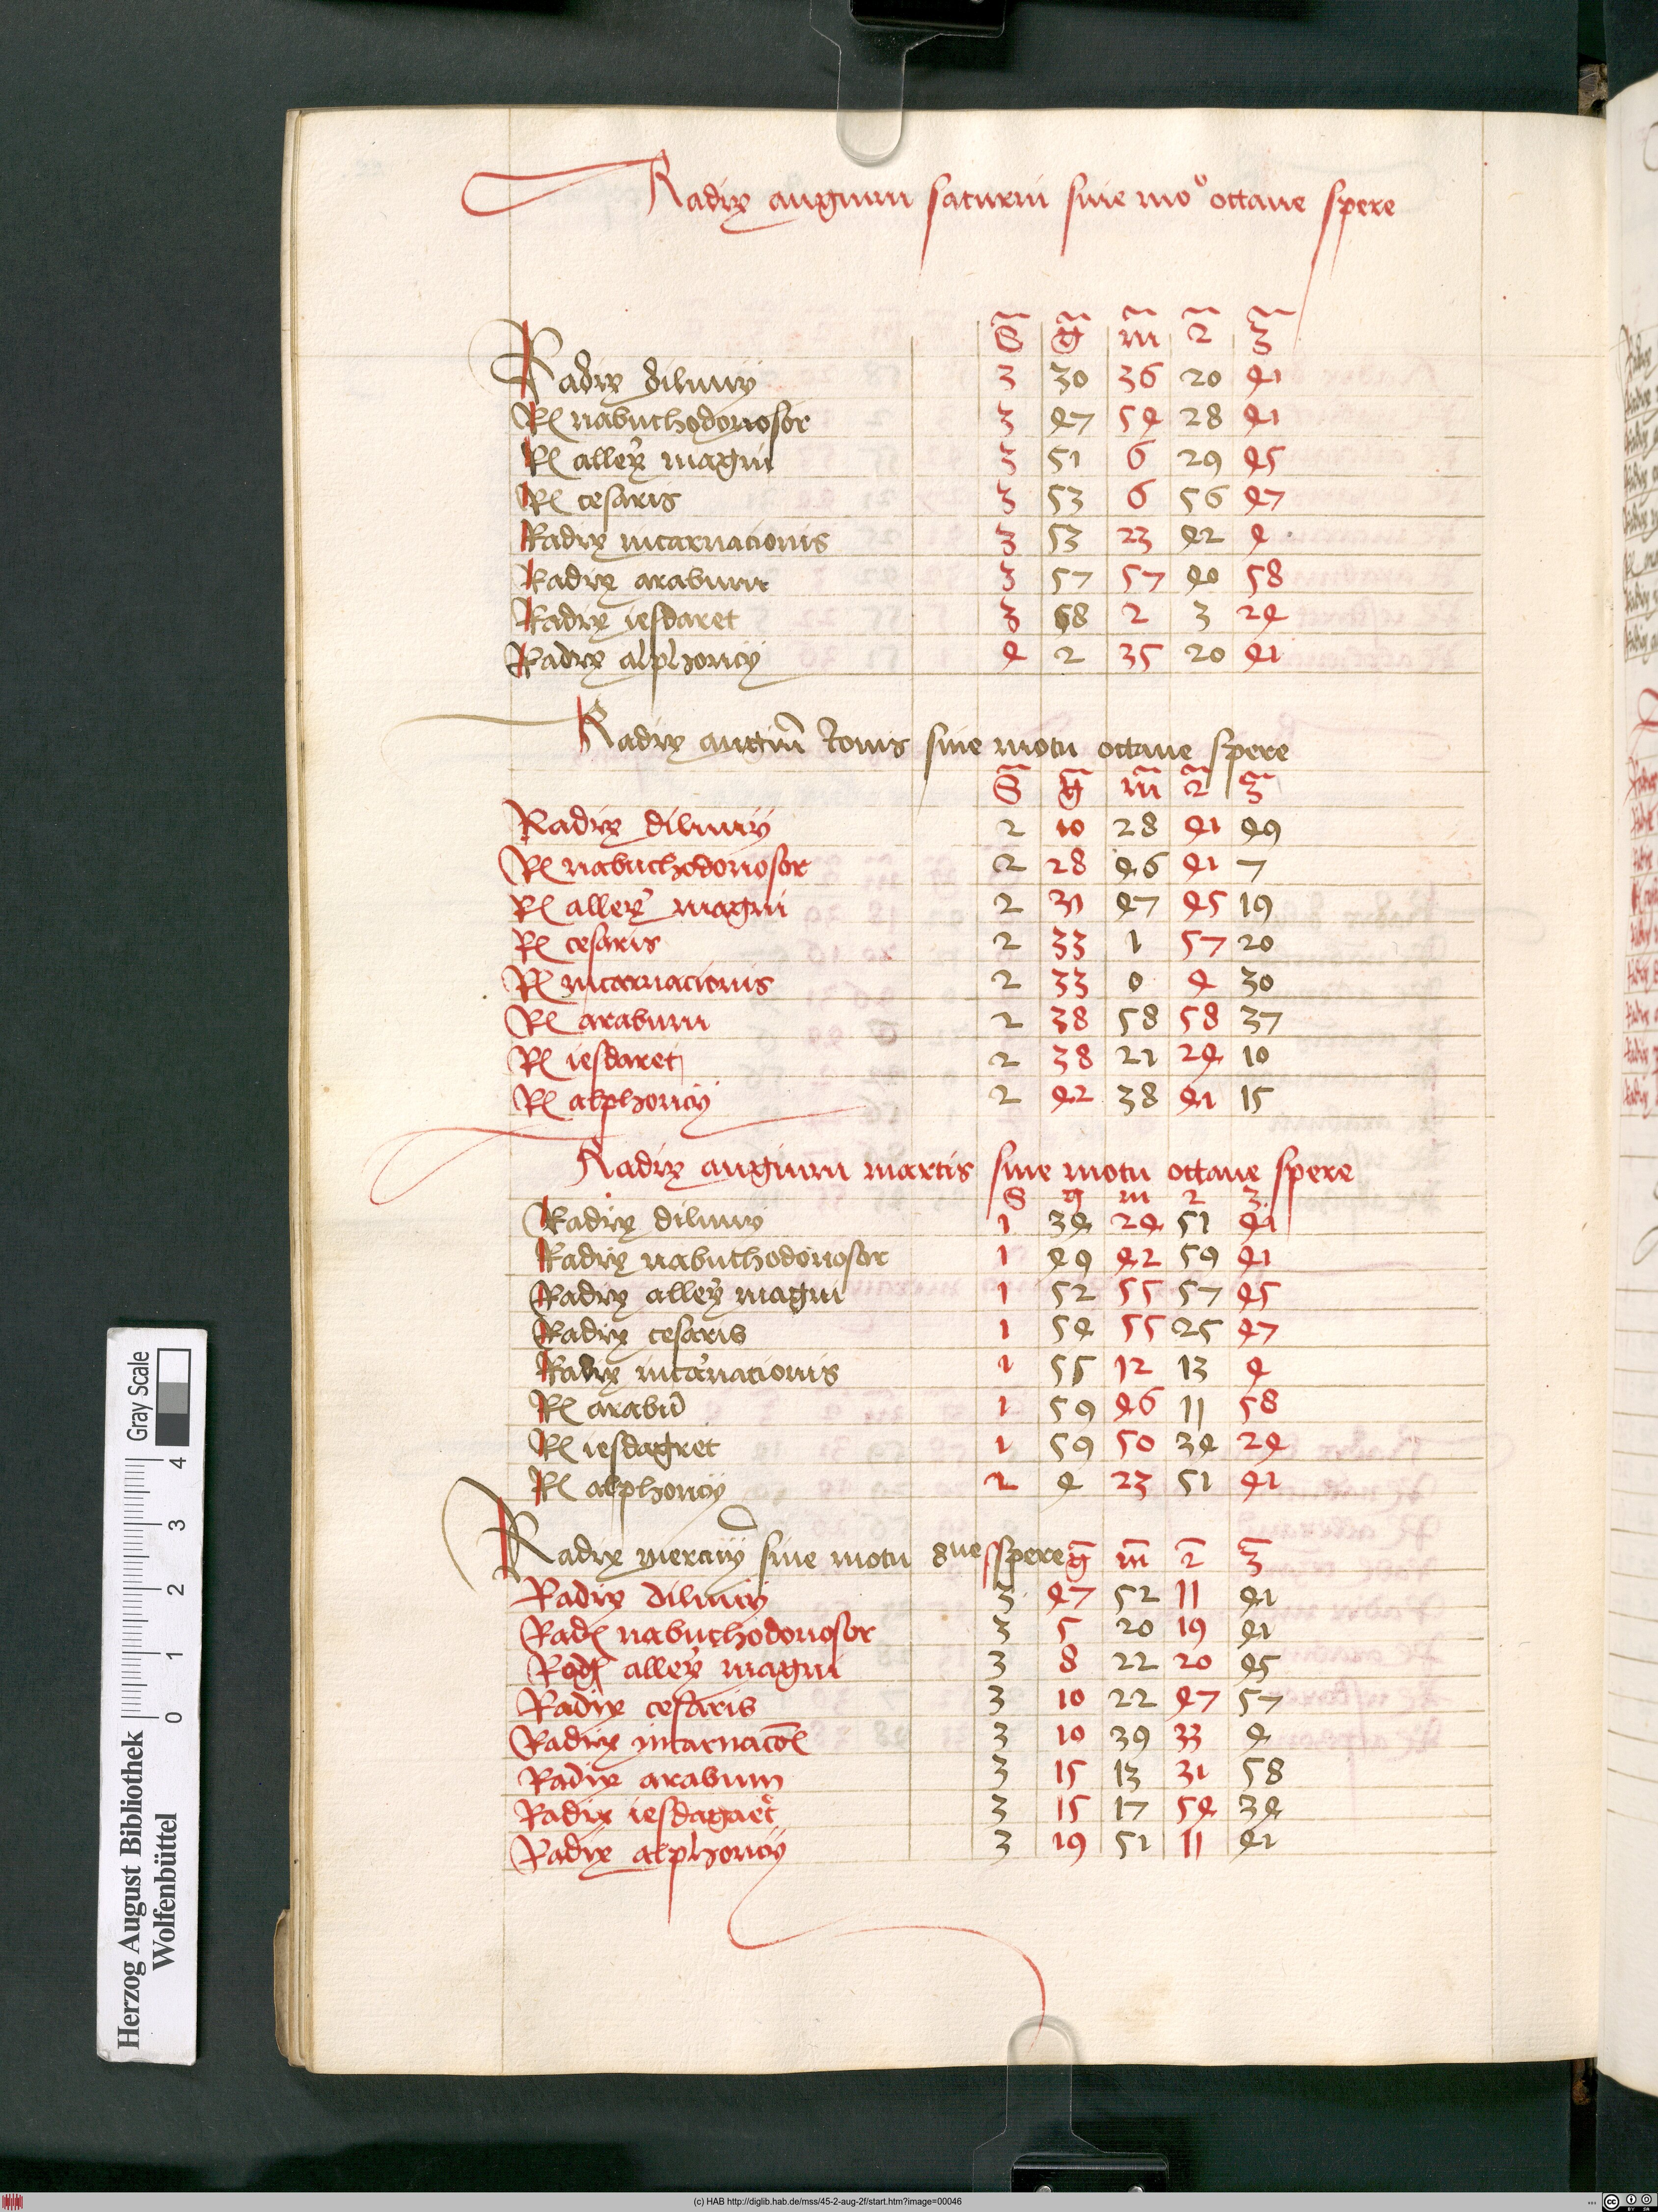 Radix augium saturni sine moº octaue spere
S g m 2 3
Radix diluuij 3 30 36 20 41
Rx nabuchodonosor 3 47 54 28 41
Rx allexr magni 3 51 6 29 45
Rx cesaris 3 53 6 56 47
Radix incarnacionis 3 53 23 42 4
Radix arabum 3 57 57 40 58
Radix iesdaret 3 58 2 3 24
Radix alphoncij 4 2 35 20 41
Radix augium Iouis sine motu octaue spere
S g m 2 3
Radix diluuij 2 10 28 41 49
Rx nabuchodonosor 2 28 46 41 7
Rx allexr magni 2 31 47 45 19
Rx cesaris 2 33 1 57 20
Rx incarnacionis 2 33 0 4 30
Rx arabum 2 38 58 58 37
Rx iesdaret 2 38 21 24 10
Rx alphoncij 2 42 38 41 15
Radix augium martis sine motu octaue spere
S g m 2 3
Radix diluuij 1 34 24 51 41
Radix nabuchodonosor 1 49 42 59 41
Radix allexr magni 1 52 55 57 45
Radix cesaris 1 54 55 25 47
Radix incarnacionis 1 55 12 13 4
Rx arabū 1 59 46 11 58
Rx iesdagret 1 59 50 34 24
Rx alphoncij 2 4 23 51 41
Radix mercurij sine motu 8ue spere S g m 2 3
Radix diluuij 3 47 52 11 41
Radx nabuchodonosor 3 5 20 19 41
Radx allexr magni 3 8 22 20 45
Radix cesaris 3 10 22 47 57
Radix incarnacōis 3 10 39 33 4
Radix arabum 3 15 13 31 58
Radix iesdagaet 3 15 17 54 34
Radix alphoncij 3 19 51 11 41
Herzog August Bibliothek
Wolfenbüttel
Gray Scale
0 1 2 3 4
(c) HAB http://diglib.hab.de/mss/45-2-aug-2f/start.htm?image=00046